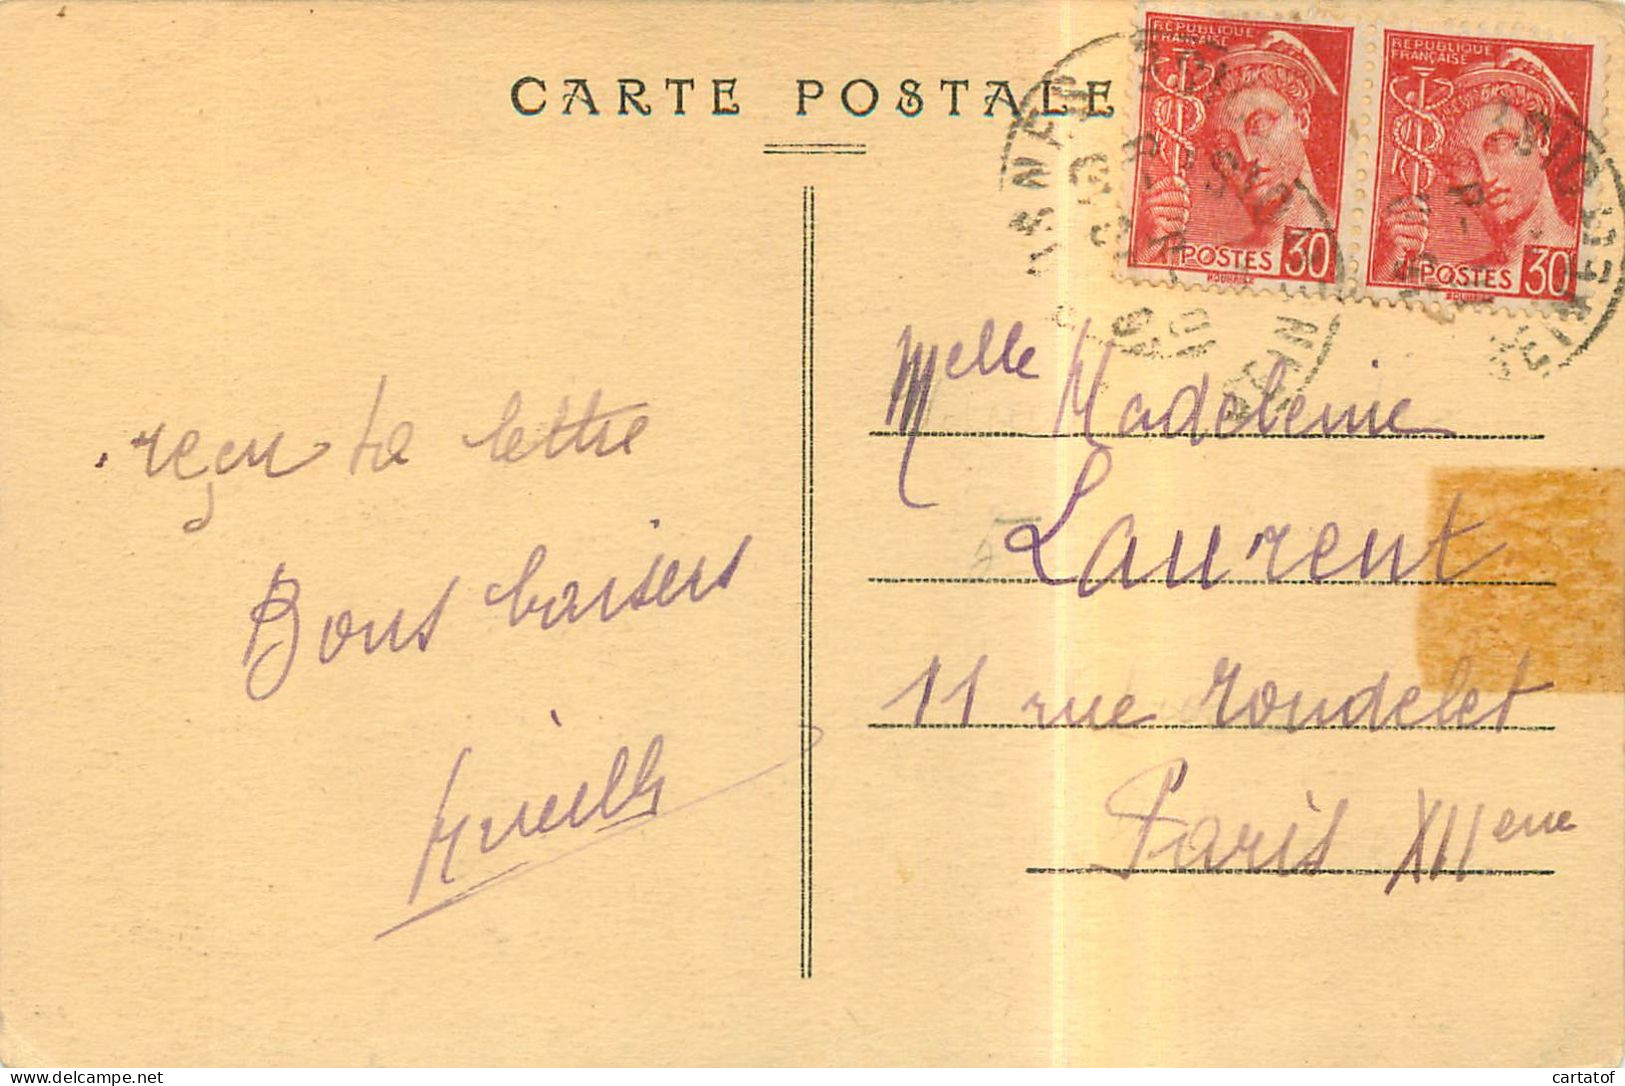 CARTE POSTALE
RÉPUBLIQUE
FRANÇAISE
POSTES 30
RÉPUBLIQUE
FRANÇAISE
POSTES 30
reçu ta lettre
Bons baisers
Melle Madeleine
Laurent
11 rue Rondelet
Paris XIIeme
cartatof